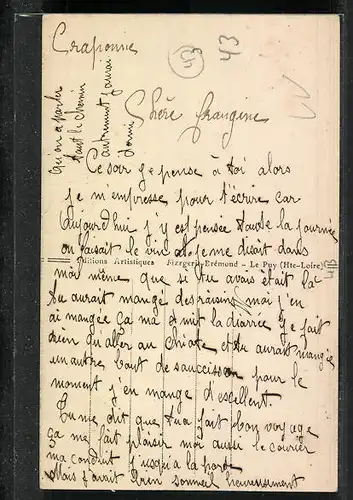 Craponne
43
43
Qu'on a parler
tant le chemin
autrement j'aurai
dormi
Chère frangine
Ce soir je pense à toi alors
je m'empresse pour t'écrire car
aujourd'hui j'y est pensée toute la journée
on faisait le vin et je me disait dans
Editions Artistiques Fizrgerit-Erémond - Le Puy (Hte-Loire)
moi même que si tu avais était la
tu aurait mangé des raisins moi j'en
ai mangée ça ma mit la diarrée je fait
rien qu'aller au chiote et tu aurait mangée
un autre bout de saucisson pour le
moment j'en mange d'escellent.
Tu me dit que tu a fait bon voyage
ça me fait plaisir moi aussi le courier
ma conduit jusqu'a la porte
Mais j'avait bien sommeil heureusement